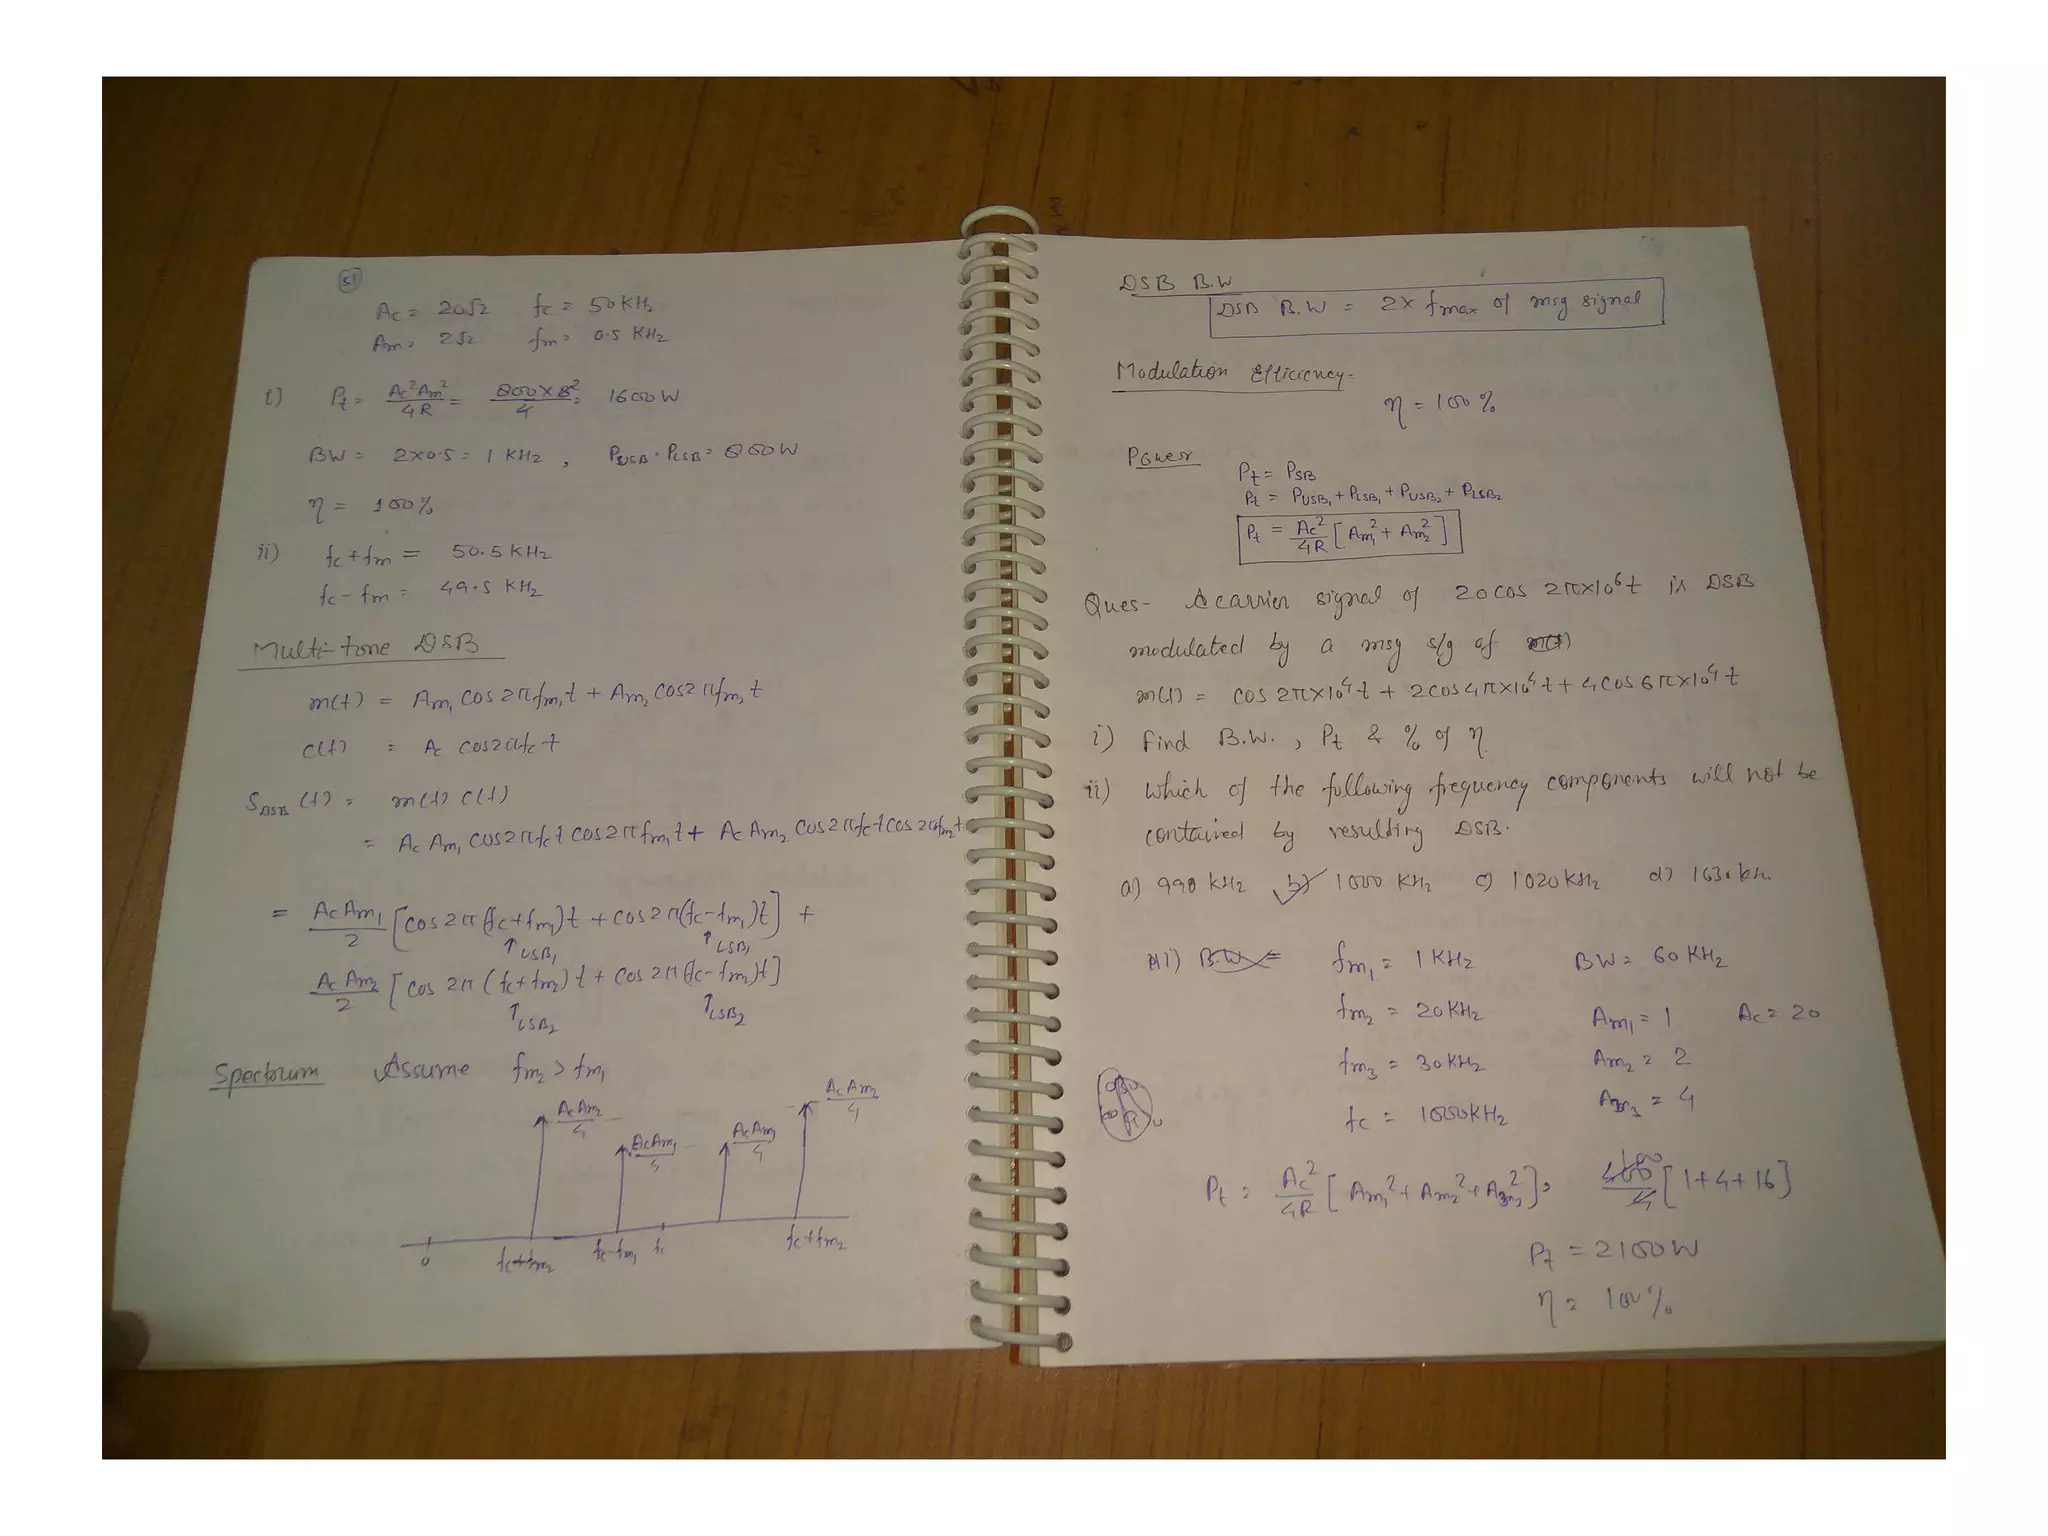 51
Ac = 20√2 fc = 50 KHz
Am = 2√2 fm = 0.5 KHz
i) Pt = Ac²Am²/4R = 800×8²/4 = 1600W
BW = 2×0.5 = 1 KHz , PUSB = PLSB = 800W
η = 100%
ii) fc + fm = 50.5 KHz
fc - fm = 49.5 KHz
Multi-tone DSB
m(t) = Am₁ cos2πfm₁t + Am₂ cos2πfm₂t
c(t) = Ac cos2πfct
SDSB (t) = m(t) c(t)
= Ac Am₁ cos2πfct cos2πfm₁t + Ac Am₂ cos2πfct cos2πfm₂t
= AcAm₁/2 [cos2π(fc+fm₁)t + cos2π(fc-fm₁)t] +
↑USB₁ ↑LSB₁
AcAm₂/2 [cos 2π(fc+fm₂)t + cos2π(fc-fm₂)t]
↑USB₂ ↑LSB₂
Spectrum Assume fm₂ > fm₁
AcAm₂/4 AcAm₁/4 AcAm₁/4 AcAm₂/4
0 fc+fm₂ fc-fm₁ fc fc+fm₂
DSB B.W
DSB B.W = 2× fmax of msg signal
Modulation Efficiency-
η = 100%
Power
Pt = PSB
Pt = PUSB₁ + PLSB₁ + PUSB₂ + PLSB₂
Pt = Ac²/4R [Am₁² + Am₂²]
Ques- A carrier signal of 20cos 2π×10⁶t is DSB
modulated by a msg s/g of m(t)
m(t) = cos 2π×10⁴t + 2cos4π×10⁴t + 4cos6π×10⁴t
i) Find B.W. , Pt & % of η
ii) Which of the following frequency components will not be
contained by resulting DSB.
a) 990 KHz b) 1000 KHz c) 1020KHz d) 1030 kHz
i) B.W = fm₁ = 1 KHz BW = 60 KHz
fm₂ = 20KHz Am₁ = 1 Ac = 20
fm₃ = 30KHz Am₂ = 2
fc = 1000KHz Am₃ = 4
Pt = Ac²/4R [Am₁² + Am₂² + Am₃²] = 400/4 [1+4+16]
Pt = 2100W
η = 100%